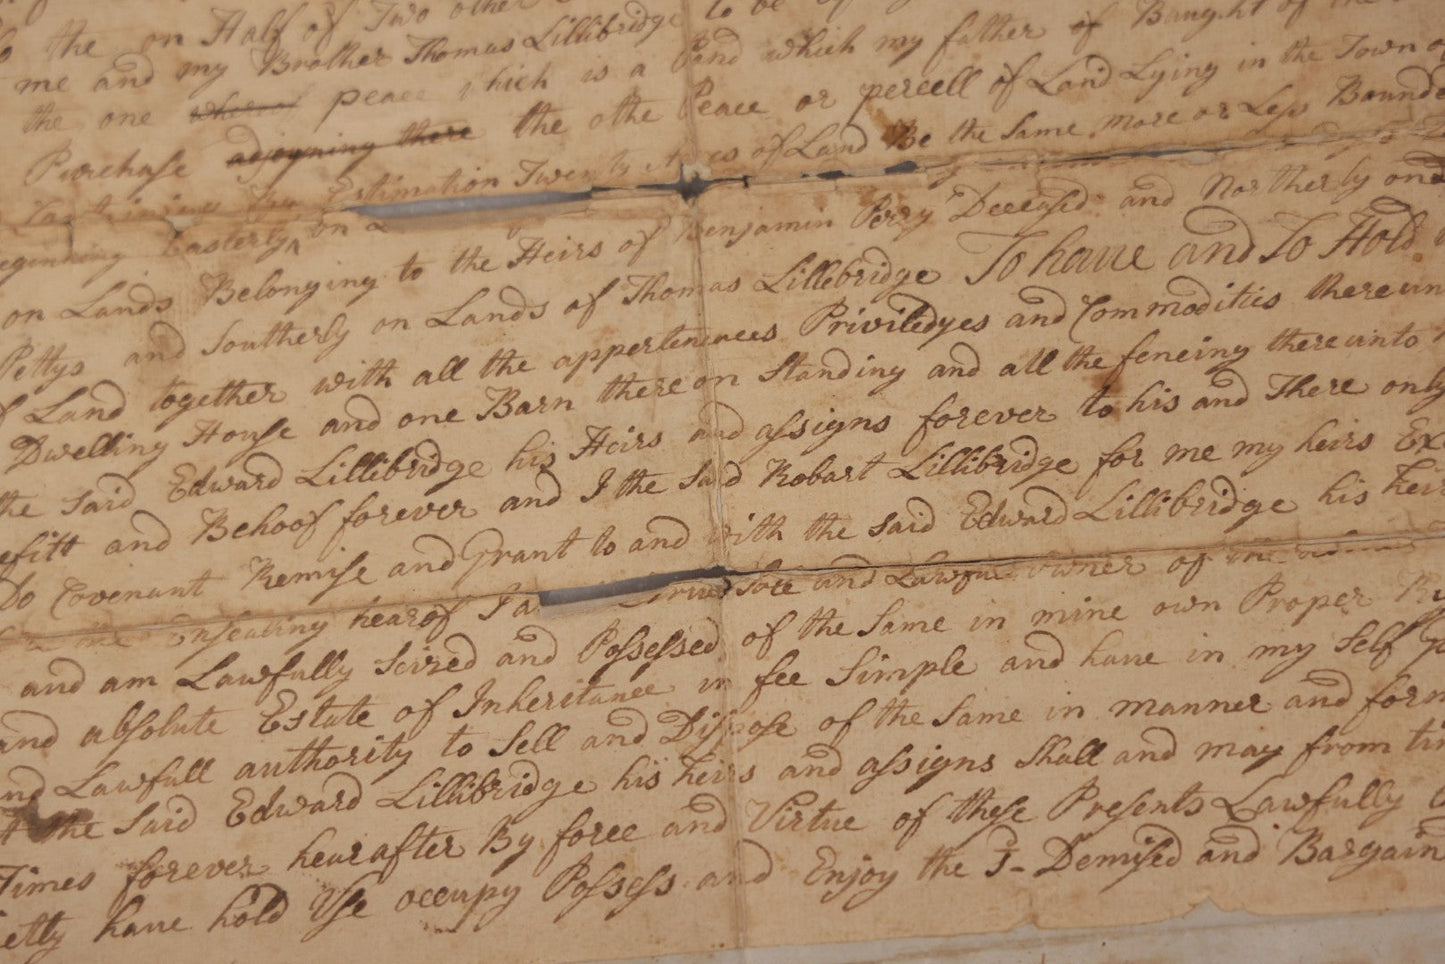 the on Half of Two other
me and my Brother Thomas Lillibridge to be
the one whereof peace which is a Pand which my father of Baught of the
Purchase adjoyning there the othe Peace or percell of Land Lying in the Town
Estimation Twenty Acres of Land Be the Same more or Less Bounde
eginning Easterly on
on Lands Belonging to the Heirs of Benjamin Perry Deceased and Northerly on
Pettys and Southerly on Lands of Thomas Lillibridge To have and To Hold
f Land together with all the appertenences Priviledges and Commodities thereun
Dwelling House and one Barn there on Standing and all the fencing thereunto
the said Edward Lillibridge his Heirs and assigns forever to his and There only
efitt and Behoof forever and I the Said Robart Lillibridge for me my heirs Ex
Do Covenant Remise and Grant to and with the said Edward Lillibridge his heir
the Ensealing hearof I a True Sole and Lawfull owner of
and am Lawfully Seized and Possessed of the Same in mine own Proper
and absolute Estate of Inheritance in fee Simple and have in my Self
nd Lawfull authority to Sell and Dispose of the Same in manner and form
the Said Edward Lillibridge his heirs and assigns Shall and may from tim
Times forever hearafter By force and Virtue of these Presents Lawfully
etly have hold Use occupy Possess and Enjoy the Demised and Bargain